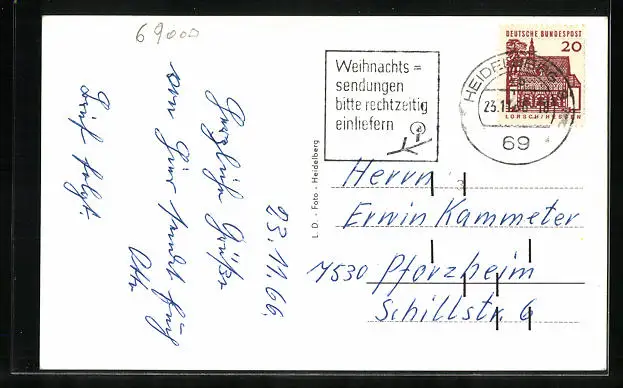 69000
23.11.66.
Herzliche Grüße
von hier sendet Euch
Otto
Brief folgt.
L. D. - Foto - Heidelberg
Weihnachts=
sendungen
bitte rechtzeitig
einliefern
HEIDELBERG
23.11.66-18
69
DEUTSCHE BUNDESPOST
20
LORSCH/HESSEN
Herrn
Erwin Kammeter
7530 Pforzheim
Schillstr. 6